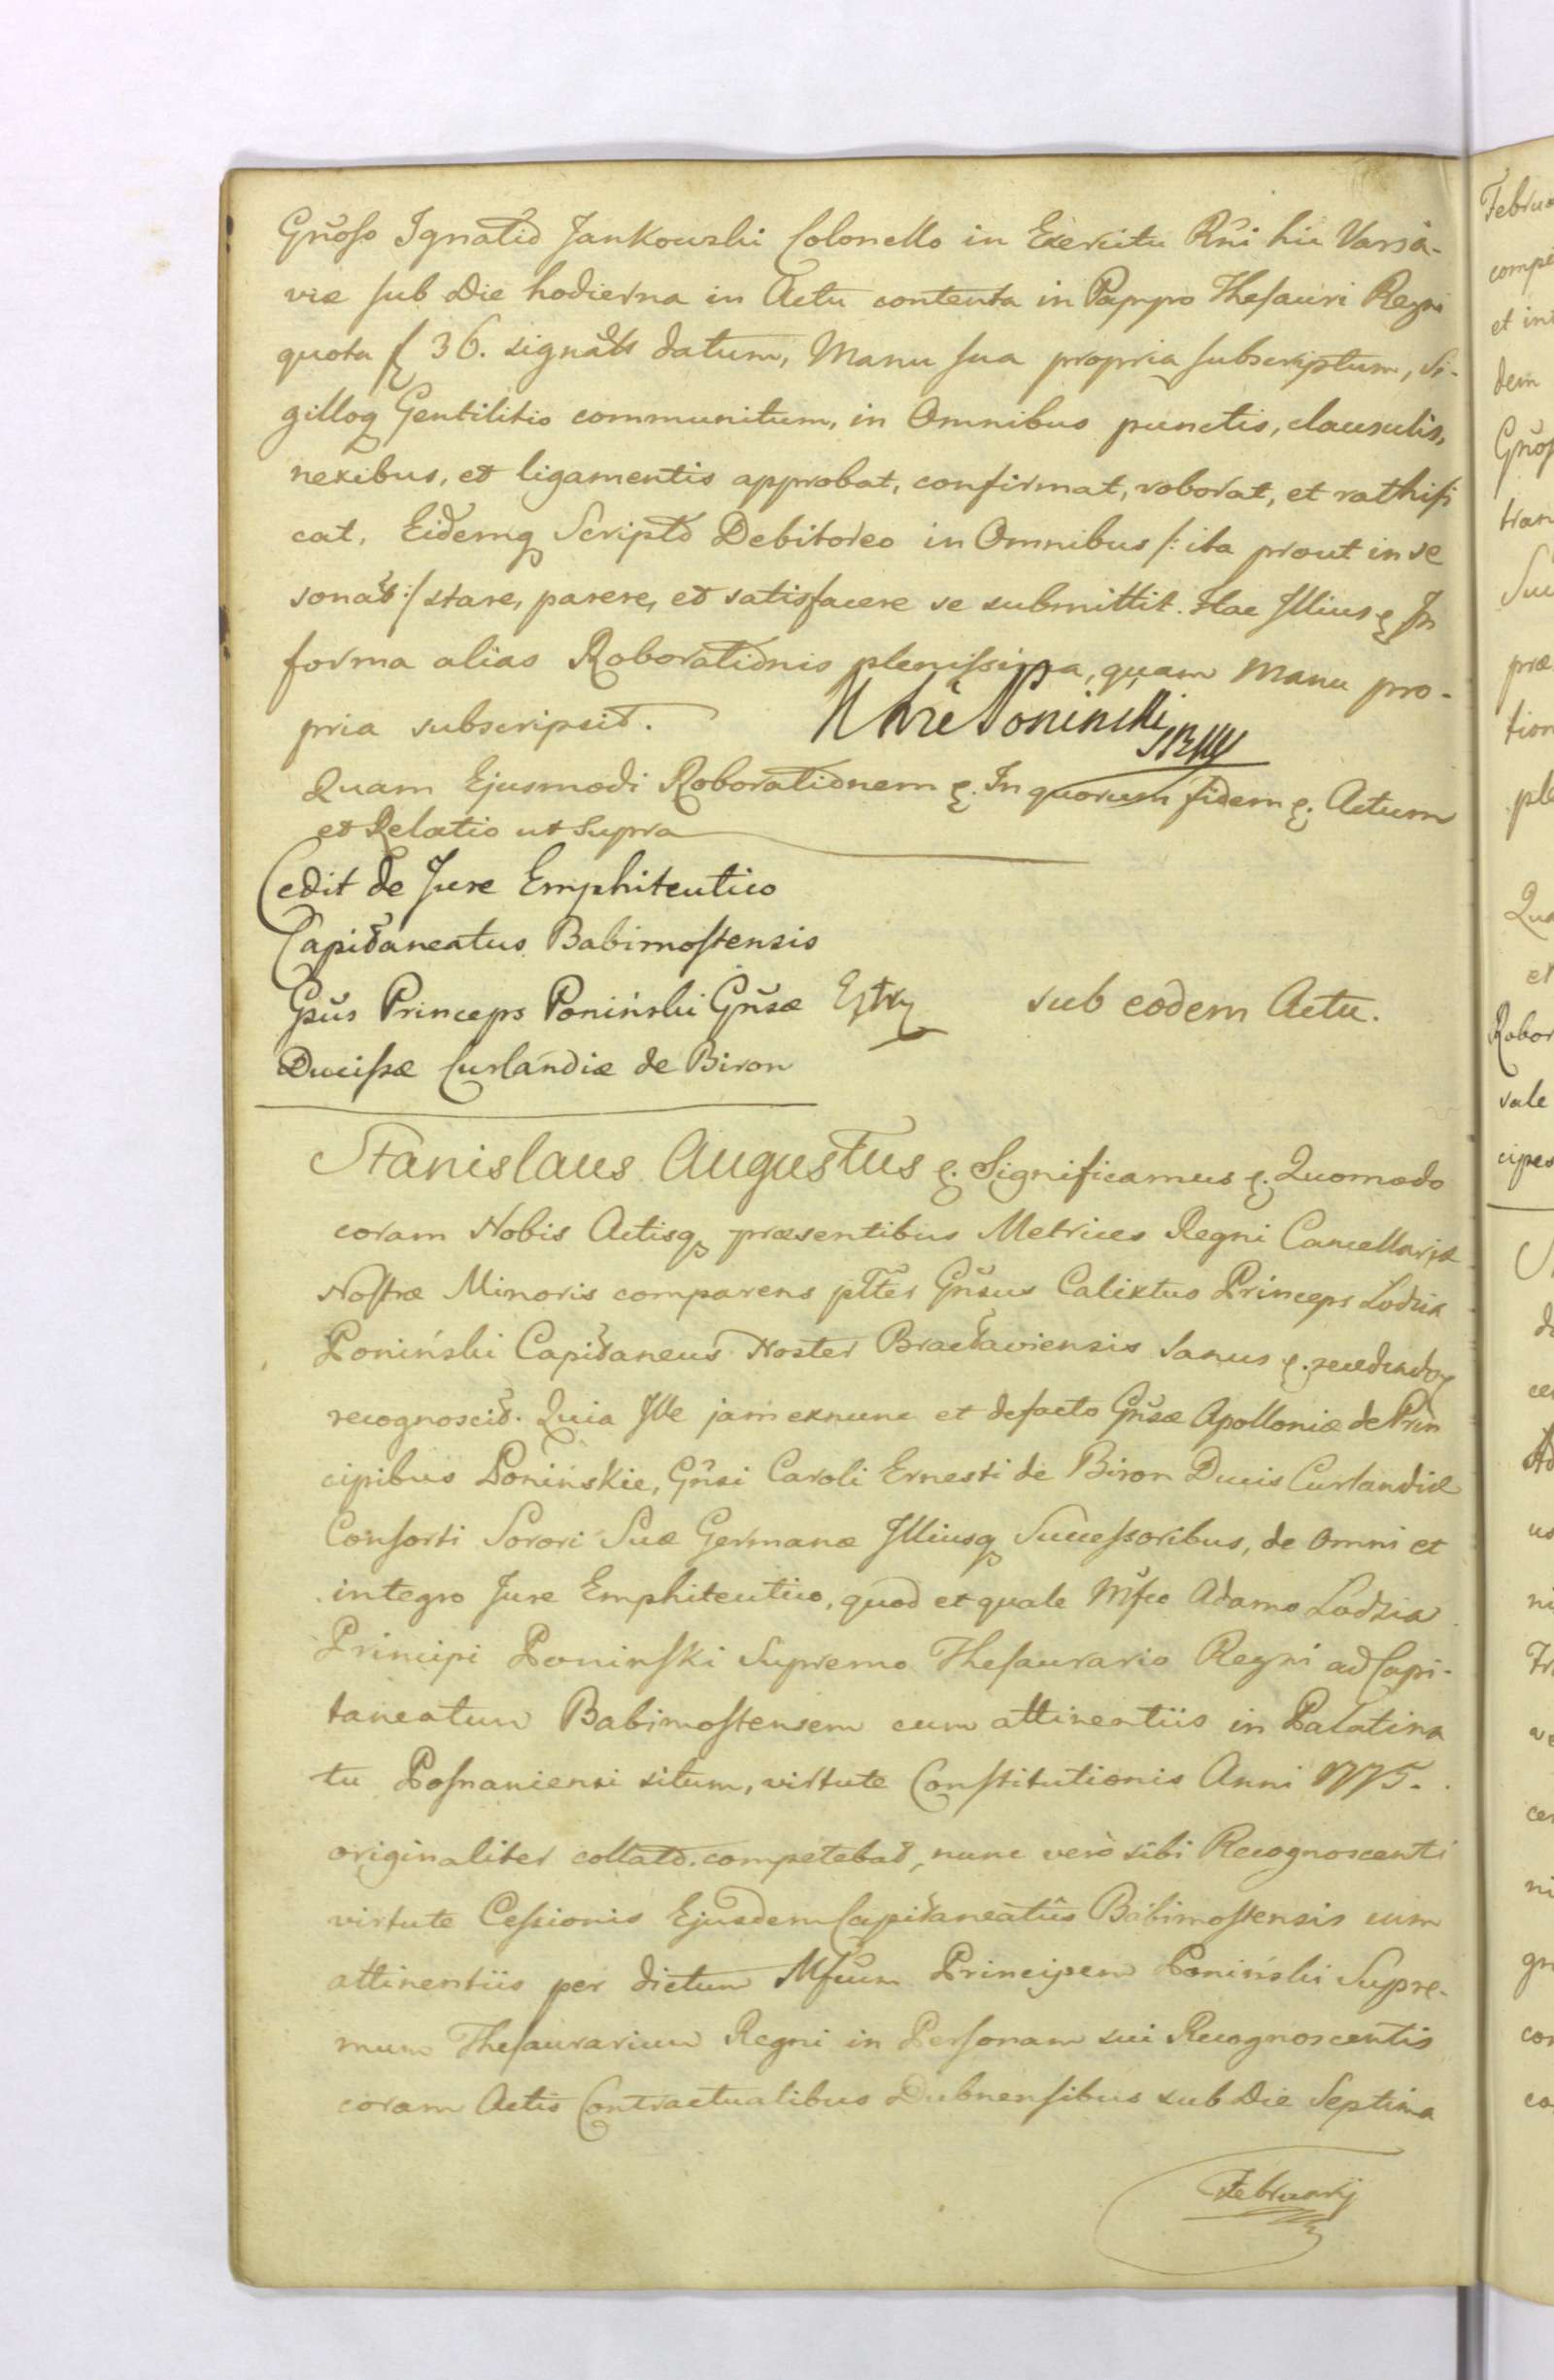 Gnoso Ignatio Jankowski Colonello in Exercitu Rni hic Varsa-
viæ sub Die hodierna in Actu contenta in Pappo Thesauri Regni
quota f 36. signato datum, Manu sua propria subscriptum, Si-
gilloq Gentilitio communitum, in Omnibus punctis, clausulis,
nexibus, et ligamentis approbat, confirmat, roborat, et rathifi
cat, Eidemq Scripto Debitoreo in Omnibus /: ita prout in se
sonat :/ stare, parere, et satisfacere se submittit. Hac Illius
forma alias Roborationis plenissima, quam Manu pro-
pria subscripsit. Poninski
Quam Ejusmodi Roborationem . In quorum fidem . Actum
et Relatio ut Supra
Cedit de Jure Emphiteutico
Capitaneatus Babimostensis
Gsus Princeps Poniński Gnsæ
Ducissæ Curlandiæ de Biron
sub eodem Actu.
Stanislaus Augustus . Significamus . Quomodo
coram Nobis Actisq præsentibus Metrices Regni Cancellariæ
Nostræ Minoris comparens pltes Gnsus Calixtus Princeps Lodzia
Poniński Capitaneus Noster Bracłaviensis Sanus .
recognoscit. Quia Ille jam exnunc et defacto Gnsæ Apolloniæ de Prin
cipibus Ponińskie, Gnsi Caroli Ernesti de Biron Ducis Curlandiæ
Consorti Sorori Suæ Germanæ Illiusq Successoribus, de omni et
integro Jure Emphiteutico, quod et quale Mfco Adamo Lodzia
Principi Poninski Supremo Thesaurario Regni ad Capi-
taneatum Babimostensem cum attinentiis in Palatina
tu Posnaniensi situm, virtute Constitutionis Anni 1775.
originaliter collato. competebat, nunc verò sibi Recognoscenti
virtute Cessionis Ejusdem Capitaneatûs Babimostensis cum
attinentiis per dictum Mfcum Principem Poniński Supre-
mum Thesaurarium Regni in Personam sui Recognoscentis
coram Actis Contractualibus Dubnensibus sub Die Septima
Februarij